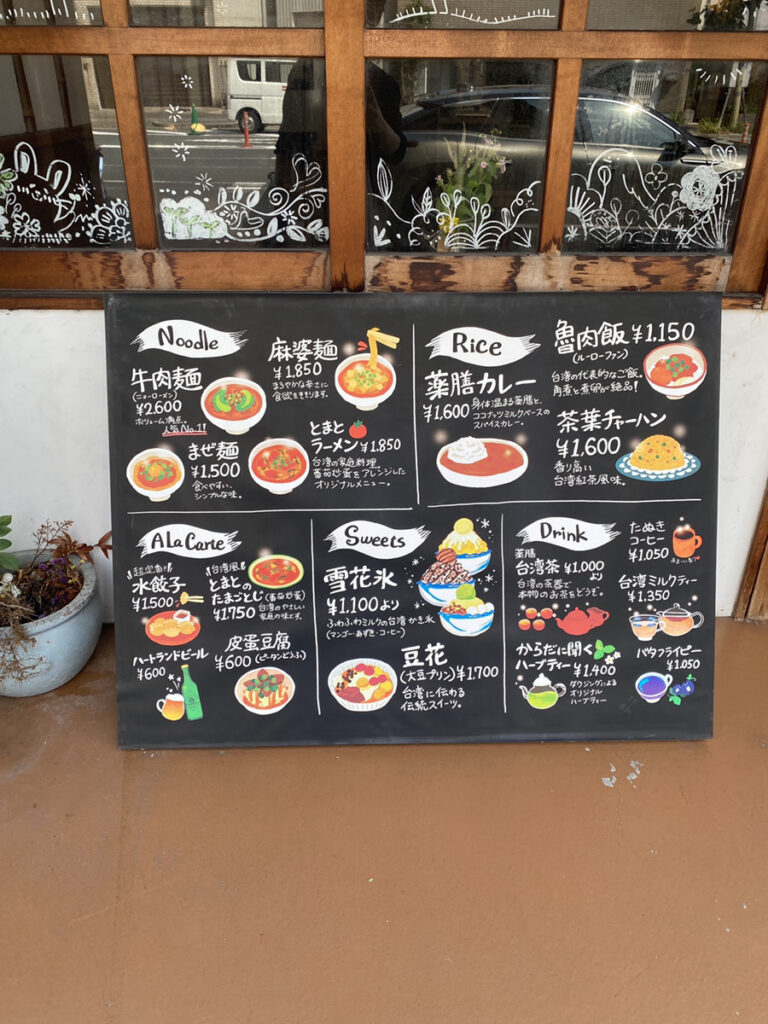 Noodle
牛肉麺
(ニューローメン)
¥2,600
ボリューム満点。
人気No.1!!
麻婆麺
¥1,850
まろやかな辛さに
食欲をそそります。
まぜ麺
¥1,500
食べやすい、
シンプルな味。
とまと
ラーメン ¥1,850
台湾の家庭料理
蕃茄炒蛋をアレンジした
オリジナルメニュー。
Rice
薬膳カレー
¥1,600 身体温まる薬膳と、
ココナッツミルクベースの
スパイスカレー。
魯肉飯 ¥1,150
(ルーローファン)
台湾の代表的なご飯。
角煮と煮卵が絶品!
茶葉チャーハン
¥1,600
香り高い
台湾紅茶風味。
A La Carte
超定番!!
水餃子
¥1,500
台湾風!
とまとの
たまごとじ (蕃茄炒蛋)
¥1750 台湾のやさしい
家庭の味です。
ハートランドビール
¥600
皮蛋豆腐
¥600 (ピータンどうふ)
Sweets
雪花氷
¥1,100より
ふわふわミルクの台湾かき氷
(マンゴー・あずき・コーヒー)
豆花
(大豆プリン) ¥1,700
台湾に伝わる
伝統スイーツ。
Drink
薬膳
台湾茶 ¥1,000より
台湾の茶器で
本物のお茶をどうぞ。
たぬき
コーヒー
¥1,050
台湾ミルクティー
¥1,350
からだに聞く
ハーブティー ¥1,400
ダウジングによる
オリジナル
ハーブティー
バタフライピー
¥1,050